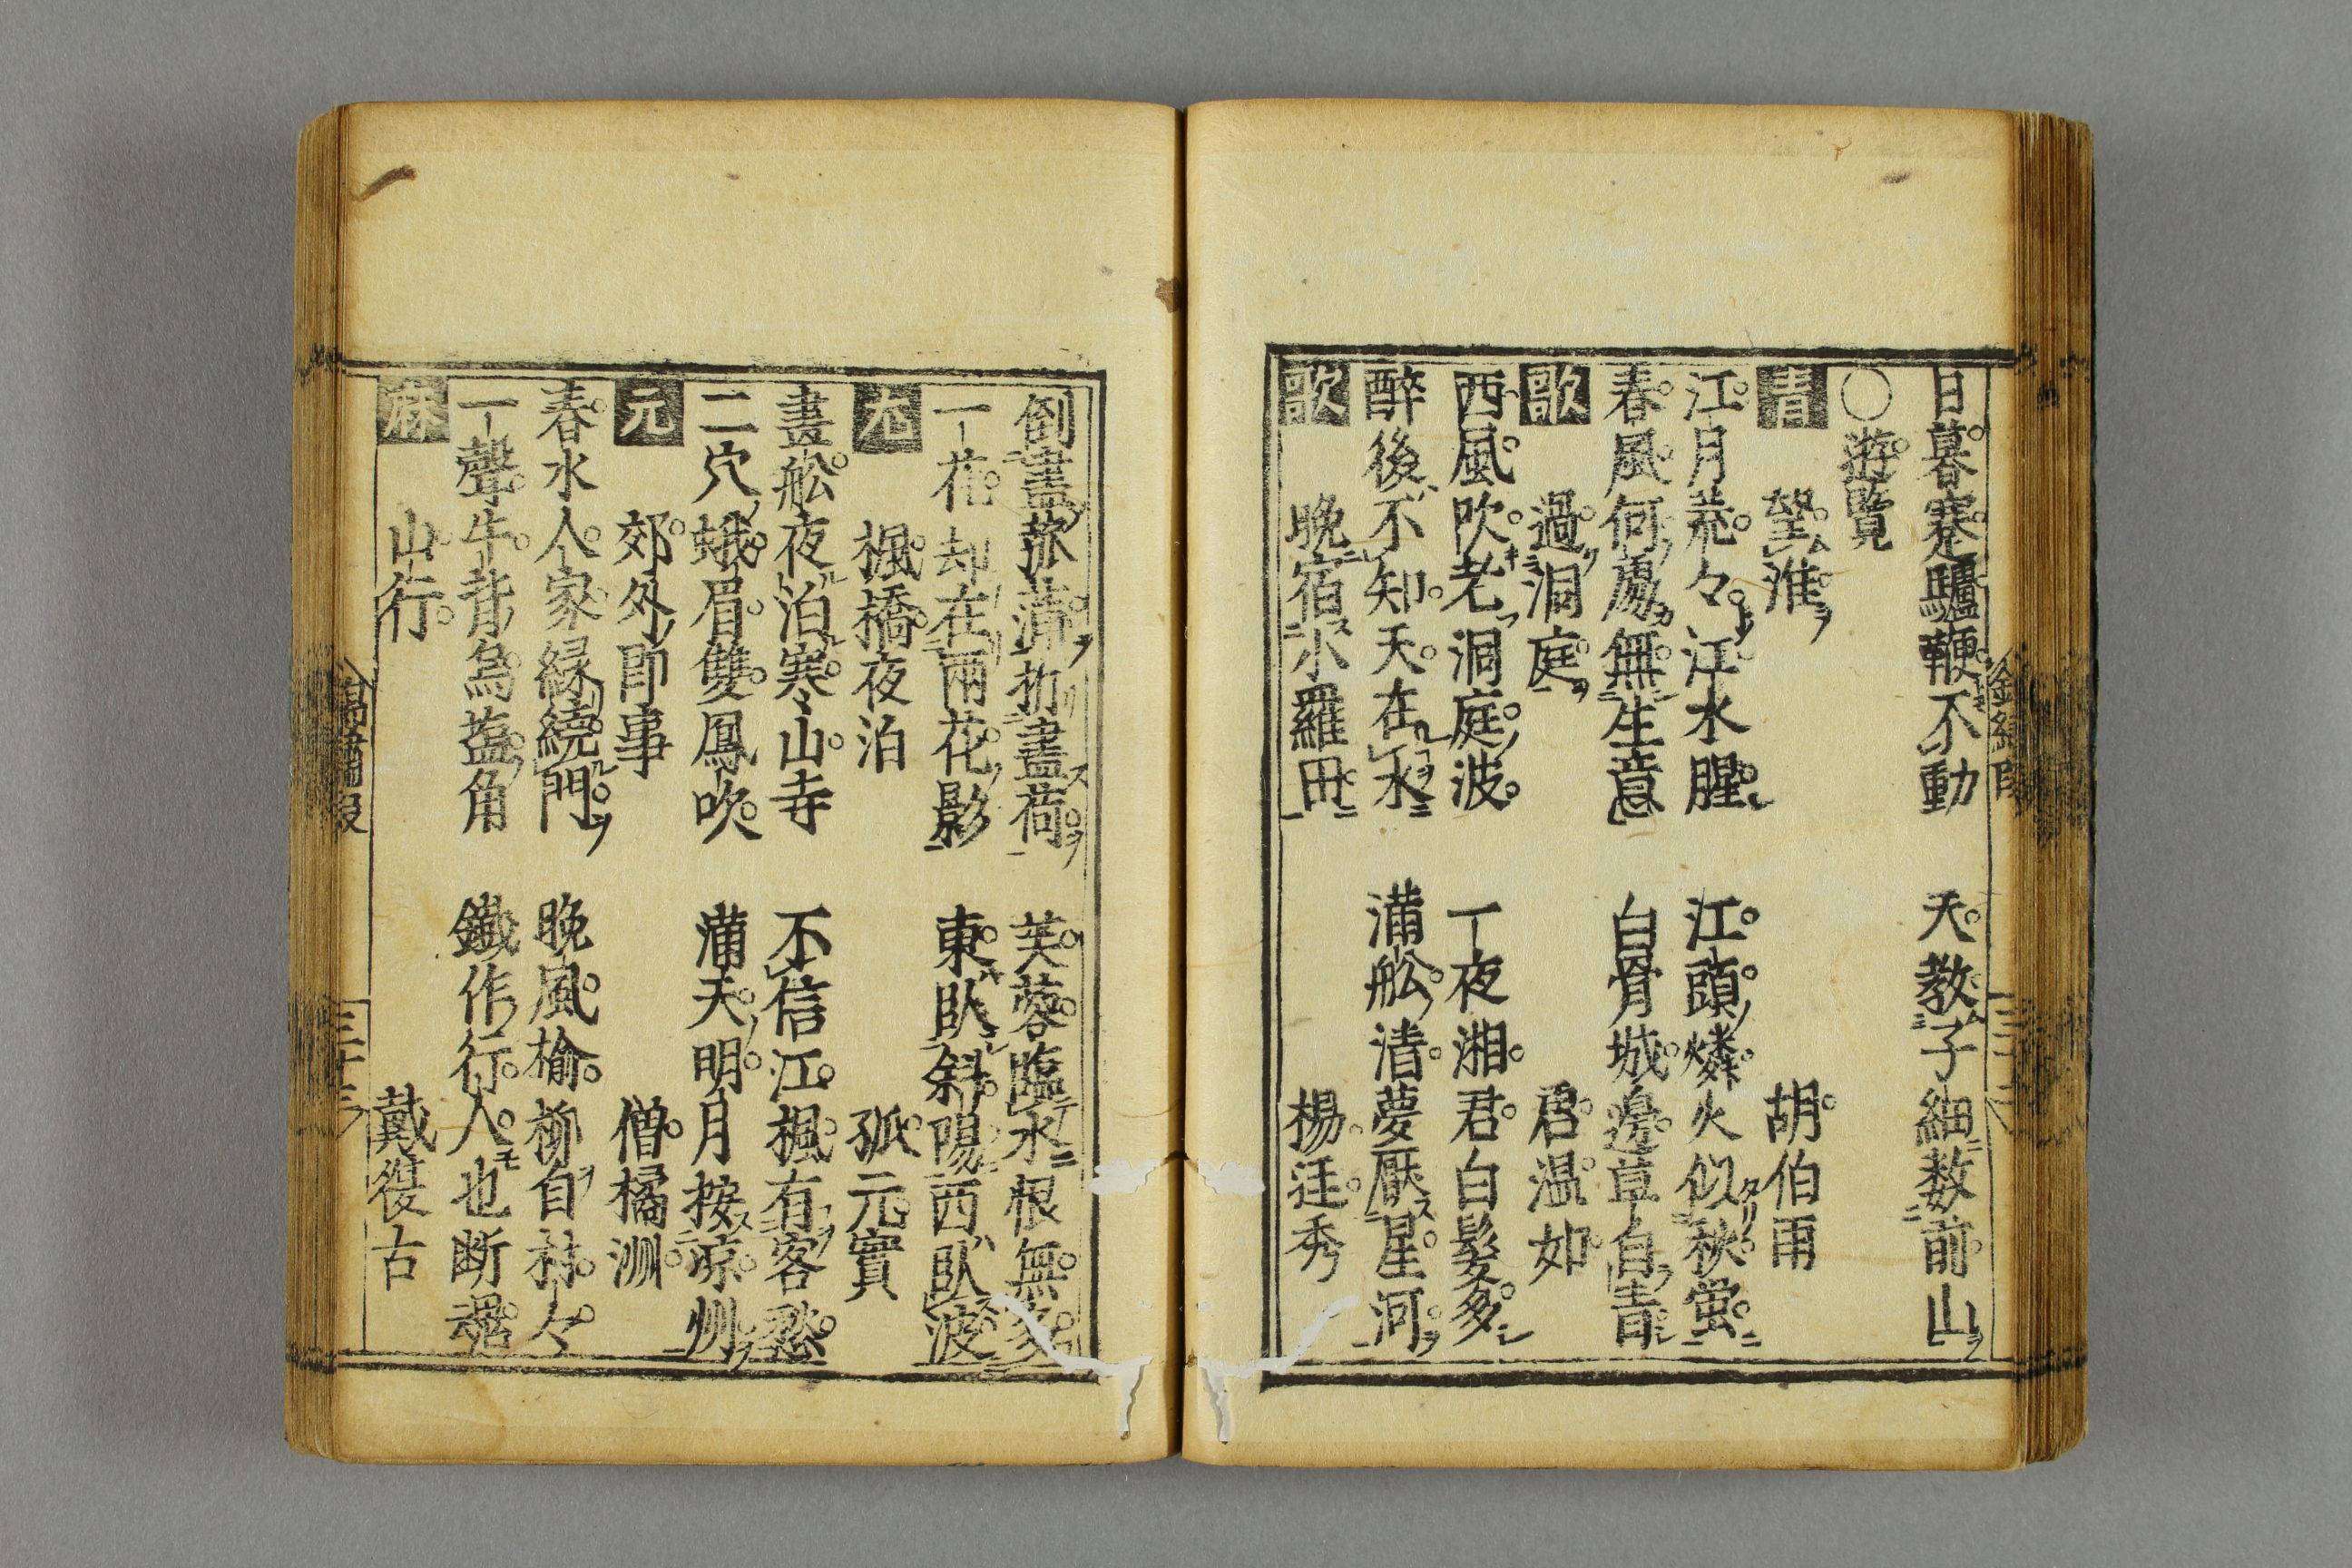 日暮蹇驢鞭不動　天教子細数前山
○遊覧
青　望淮　胡伯雨
江月荒々江水腥　江頭燐火似秋螢
春風何處無生意　白骨城邊草自青
歌　過洞庭　唐温如
西風吹老洞庭波　一夜湘君白髪多
醉後不知天在水　滿舩清夢壓星河
歌　晩宿小羅田　楊廷秀
三十三
倒盡菰蒲折盡荷　芙蓉臨水根無多
一花却在兩花影　東臥斜陽西臥波
尤　楓橋夜泊　孤元實
畫舩夜泊寒山寺　不信江楓有客愁
二穴蛾眉雙鳳吹　滿天明月按凉州
元　郊外即事　僧橘洲
春水人家緑繞門　晩風榆柳自村々
一聲牛背烏䀋角　鐵作行人也断魂
麻　山行　戴復古